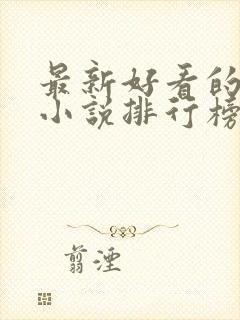 最新好看的
小说排行榜
翦湮